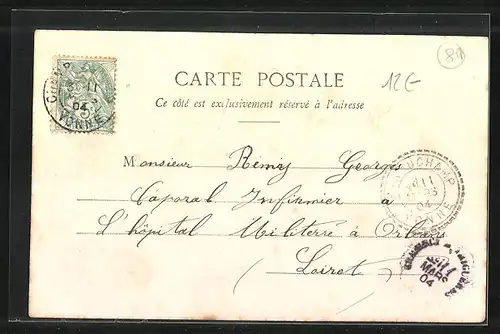 (89)
12€
CARTE POSTALE
Ce côté est exclusivement réservé à l'adresse
Monsieur Rémy Georges
Caporal Infirmier à
L'hôpital Militerré à Orléans
(Loiret)
11
04
YONNE
11
04
YONNE
MARS
04